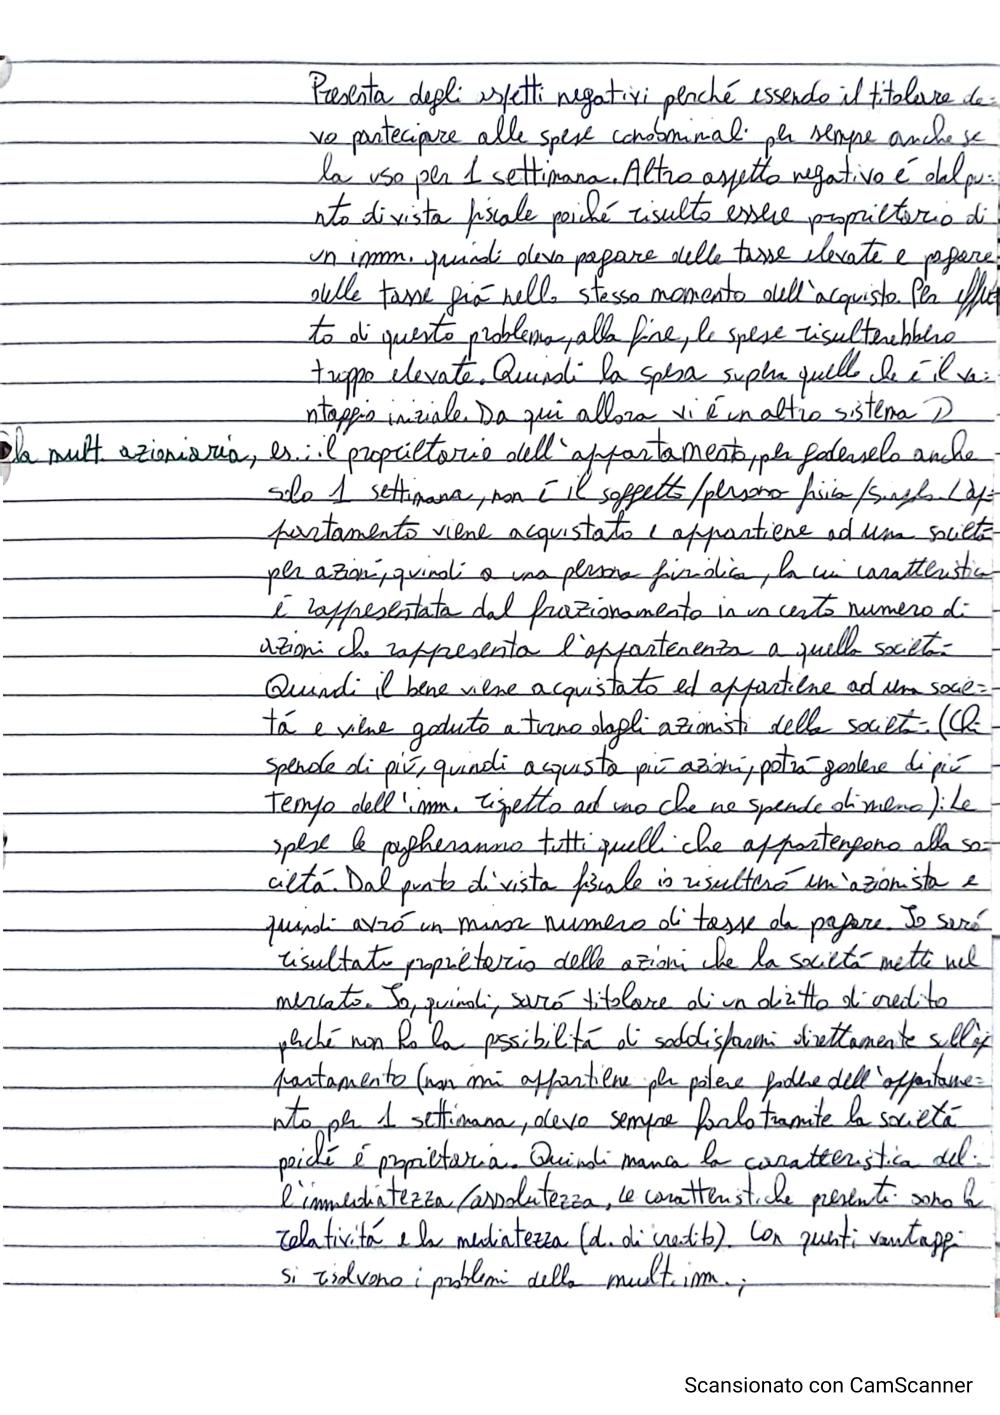 Presenta degli aspetti negativi perché essendo il titolare de=
vo partecipare alle spese condominali per sempre anche se
la uso per 1 settimana. Altro aspetto negativo é dal pu=
nto di vista fiscale poiché risulto essere proprietario di
un imm. quindi devo pagare delle tasse elevate e pagare
delle tasse giá nello stesso momento dell'acquisto. Per effet
to di questo problema, alla fine, le spese risulterebbero
troppo elevate. Quindi la spesa supera quello che é il va=
ntaggio iniziale. Da qui allora vi é un altro sistema
la mult. azionaria, es.: il proprietario dell'appartamento, per goderselo anche
solo 1 settimana, non é il soggetto/persona fisica/singola. L'ap=
partamento viene acquistato e appartiene ad una societá
per azioni, quindi a una persona giuridica, la cui caratteristica
é rappresentata dal frazionamento in un certo numero di
azioni che rappresenta l'appartenenza a quella societá.
Quindi il bene viene acquistato ed appartiene ad una socie=
tá e viene goduto a turno dagli azionisti della societá. (Chi
spende di piú, quindi acquista piú azioni, potrá godere di piú
tempo dell'imm. rispetto ad uno che ne spende di meno). Le
spese le pagheranno tutti quelli che appartengono alla so=
cietá. Dal punto di vista fiscale io risulteró un'azionista e
quindi avró un minor numero di tasse da pagare. Io saró
risultato proprietario delle azioni che la societá mette nel
mercato. Io, quindi, saró titolare di un diritto di credito
perché non ho la possibilitá di soddisfarmi direttamente sull'ap
partamento (non mi appartiene per potere godere dell'appartame=
nto per 1 settimana, devo sempre farlo tramite la societá
poiché é proprietaria. Quindi manca la caratteristica del=
l'immediatezza/assolutezza, le caratteristiche presenti sono la
relativitá e la mediatezza (d. di credito). Con questi vantaggi
si risolvono i problemi della mult. imm.;
Scansionato con CamScanner